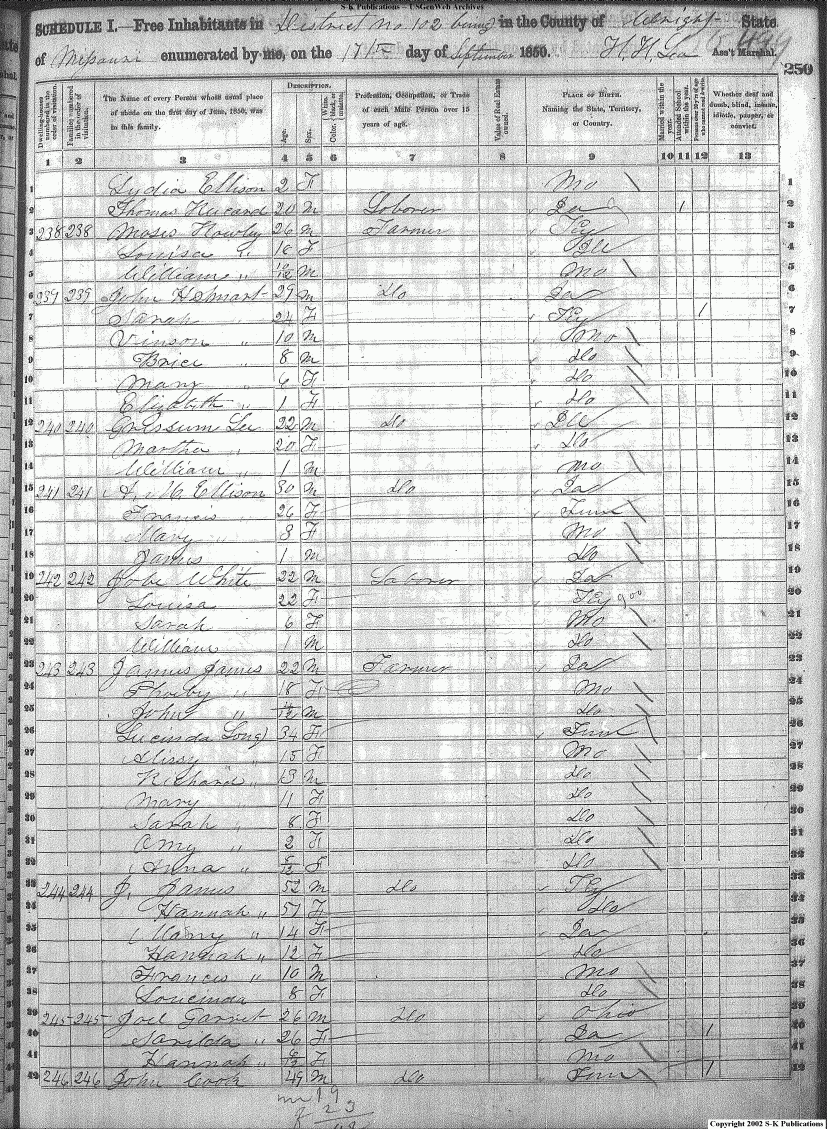 S-K Publications -- USGenWeb Archives
SCHEDULE I.—Free Inhabitants in District No 102 being in the County of Wright State
of Missouri enumerated by me, on the 17th day of September 1850. H. H. Lea Ass't Marshal.
499
250
Dwelling-houses numbered in the order of visitation.
Families numbered in the order of visitation.
The Name of every Person whose usual place of abode on the first day of June, 1850, was in this family.
DESCRIPTION.
Age.
Sex.
Color, White, black, or mulatto.
Profession, Occupation, or Trade of each Male Person over 15 years of age.
Value of Real Estate owned.
PLACE OF BIRTH. Naming the State, Territory, or Country.
Married within the year.
Attended School within the year.
Persons over 20 y'rs of age who cannot read & write.
Whether deaf and dumb, blind, insane, idiotic, pauper, or convict.
1 2 3 4 5 6 7 8 9 10 11 12 13
1 Lydia Ellison 2 F Mo 1
2 Thomas 20 M Laborer 1 2
3 238 238 Moses 26 M Farmer Ky 3
4 Louisa " 18 F Ill 4
5 William " M Mo 5
6 239 239 John 29 M Do 6
7 Sarah 24 F Ky 1 7
8 Vinson " 10 M Mo 8
9 Brice " 8 M Do 9
10 Mary " 6 F Do 10
11 Elizabeth " 1 F Do 11
12 240 240 Grissum Lee 22 M Do Ill 12
13 Martha " 20 F Do 13
14 William " 1 M Mo 14
15 241 241 Ellison 30 M Do 15
16 Francis " 26 F Tenn 16
17 Mary " 3 F Mo 17
18 James 1 M Do 18
19 242 242 Jobe White 22 M Laborer 19
20 Louisa 22 F Ky 20
21 Sarah 6 F Mo 21
22 William 1 M Do 22
23 243 243 James James 22 M Farmer 23
24 Phoeby " 18 F Mo 24
25 John " M Do 25
26 Lucinda Long 34 F Tenn 26
27 " 15 F Mo 27
28 Richard " 13 M Do 28
29 Mary " 11 F Do 29
30 Sarah " 8 F Do 30
31 Amy " 2 F Do 31
32 Anna " Do 32
33 244 244 J. James 52 M Do Ky 33
34 Hannah " 51 F Do 34
35 Mary " 14 F 35
36 Hannah " 12 F Do 36
37 Francis " 10 M Mo 37
38 Loucinda 8 F Do 38
39 245 245 Joel Garret 26 M Do Ohio 39
40 Sarilda " 26 F 1 40
41 Hannah " F Mo 41
42 246 246 John Cook 49 M Do Tenn 1 42
m 19
f 23
Copyright 2002 S-K Publications